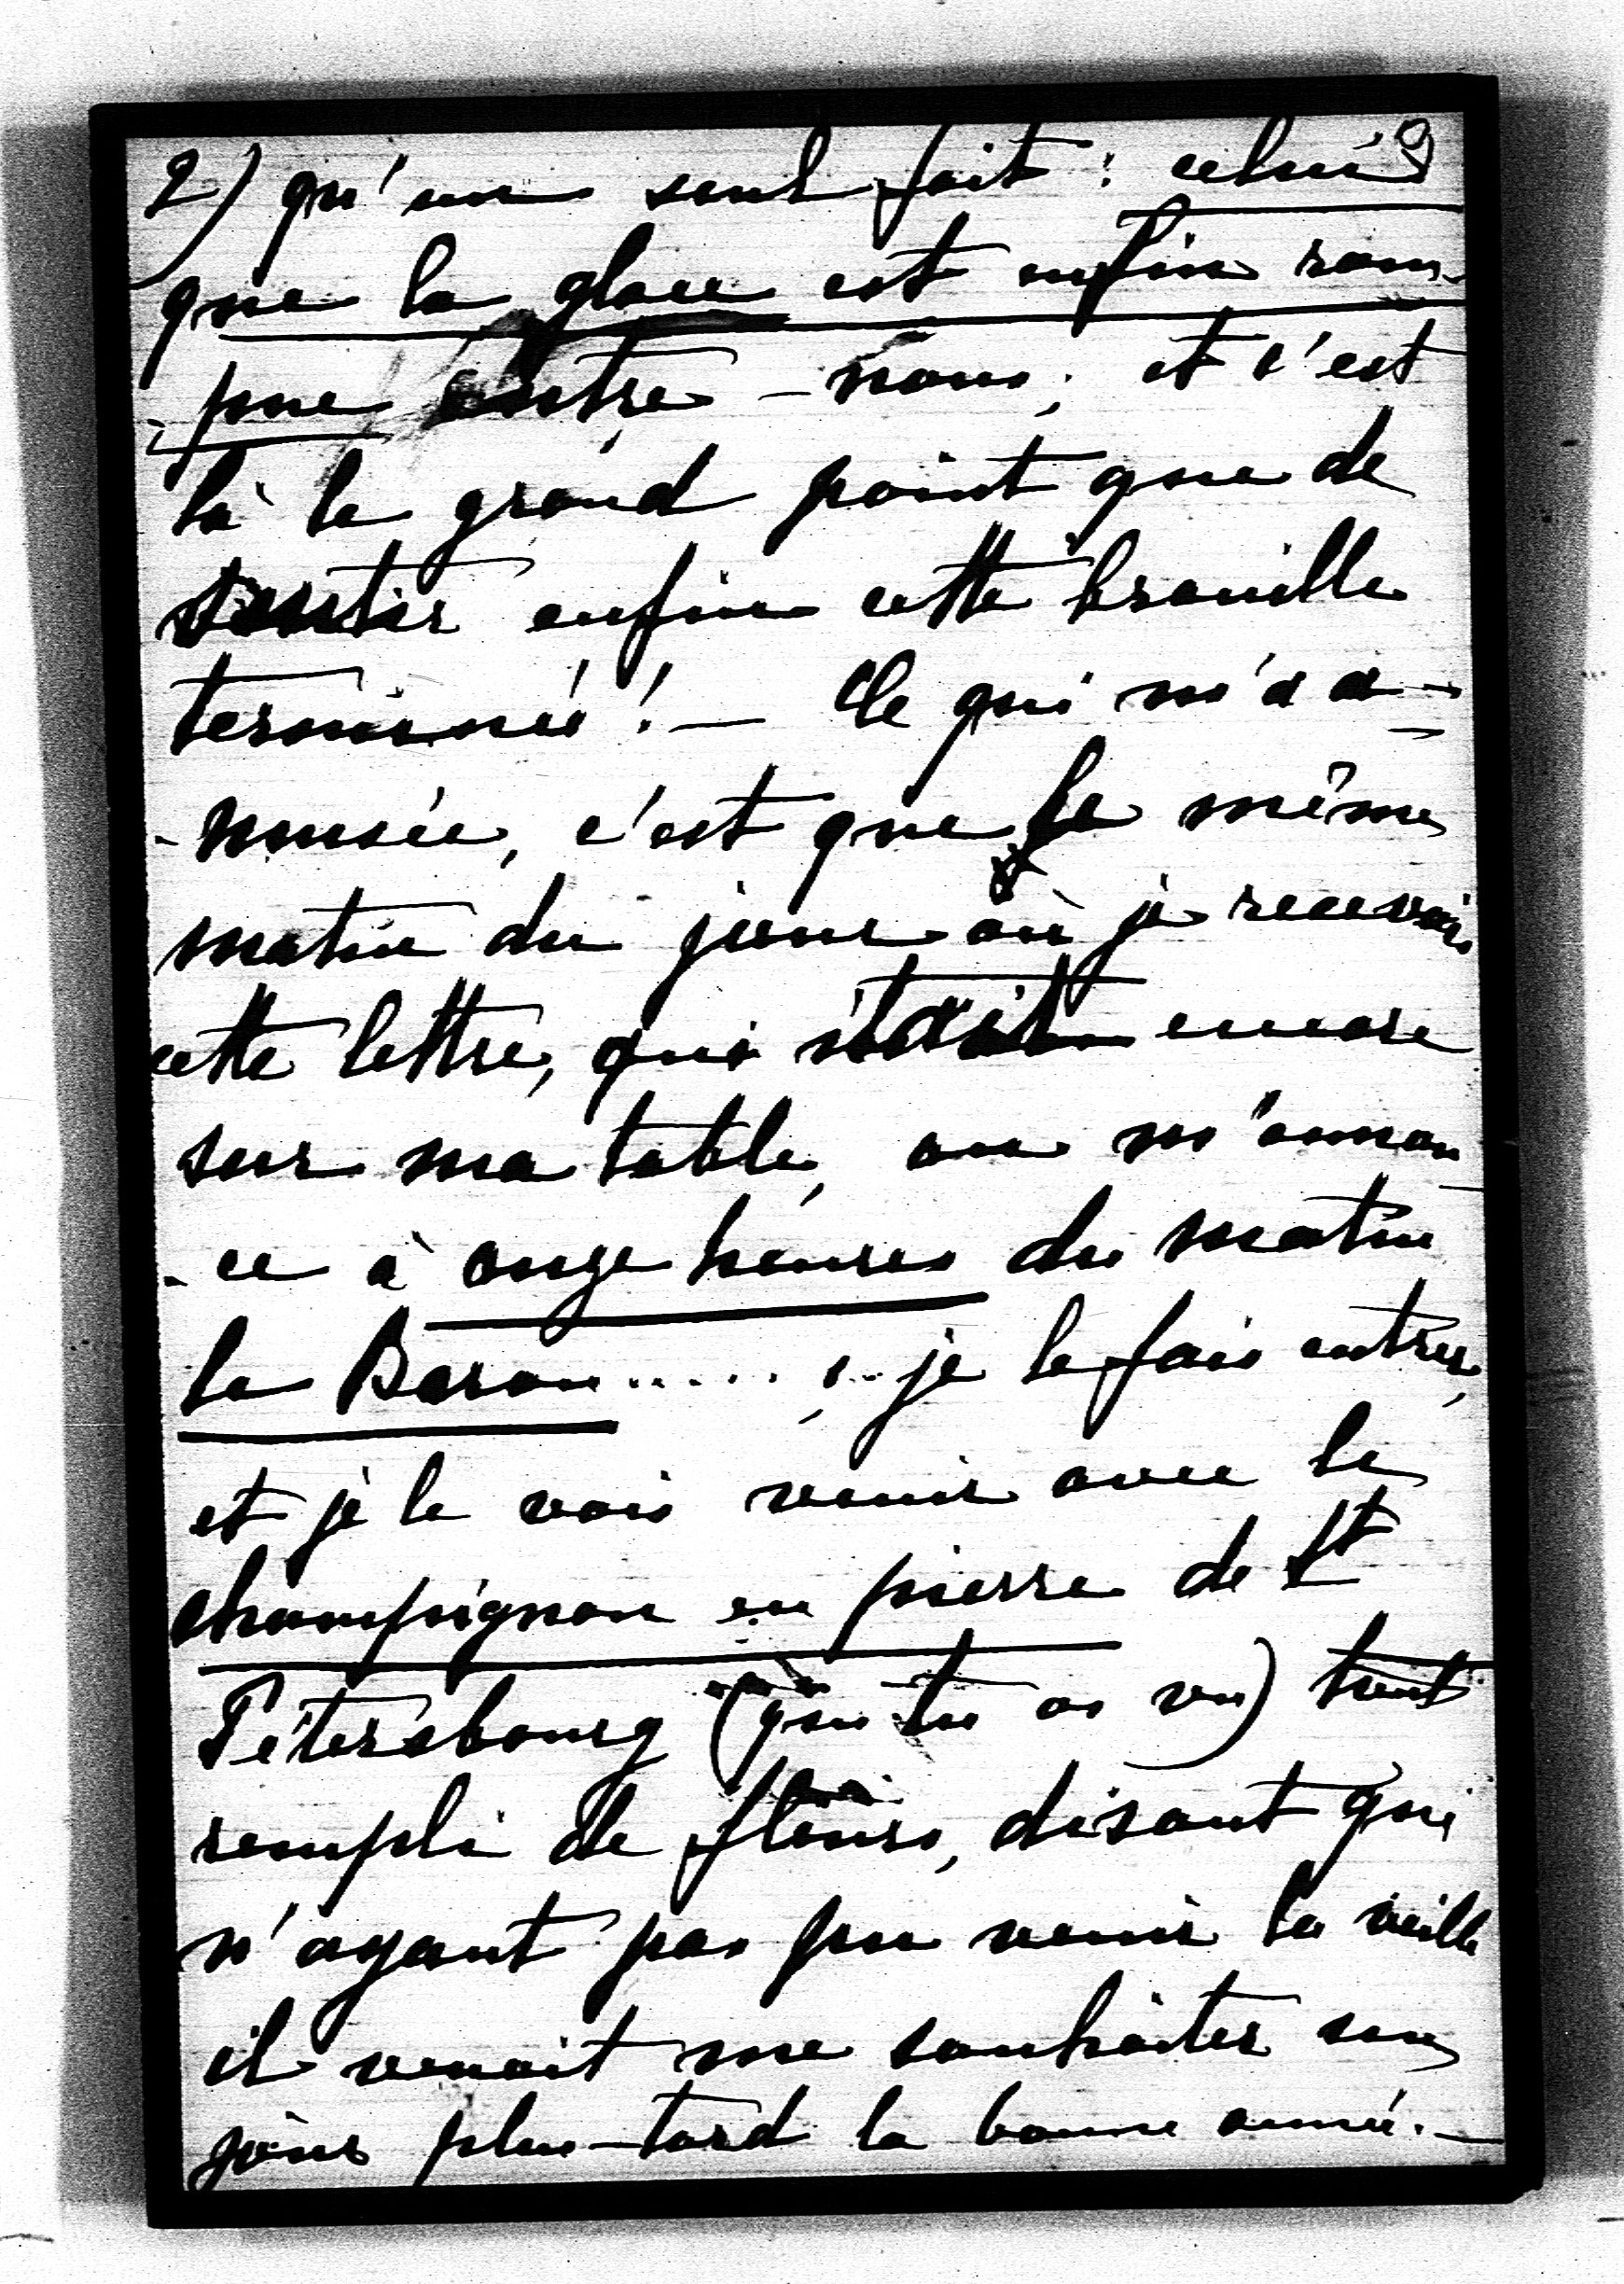 2) qu'un seul fait : celui 9
que la glace est enfin rom-
-pue entre-nous; et c'est
là le grand point que de
sentir enfin cette brouille
terminée! — Ce qui m'a a-
-musée, c'est que le même
matin du jour où je recevais
cette lettre, qui était encore
sur ma table, on m'annon-
-ce à onze heures du matin
le Baron ..... ; je le fais entrer,
et je le vois venir avec le
champignon en pierre de St
Pétersbourg (que tu as vu) tout
rempli de fleurs, disant que
n'ayant pas pu venir la veille
il venait me souhaiter un
jour plus-tard la bonne année. —